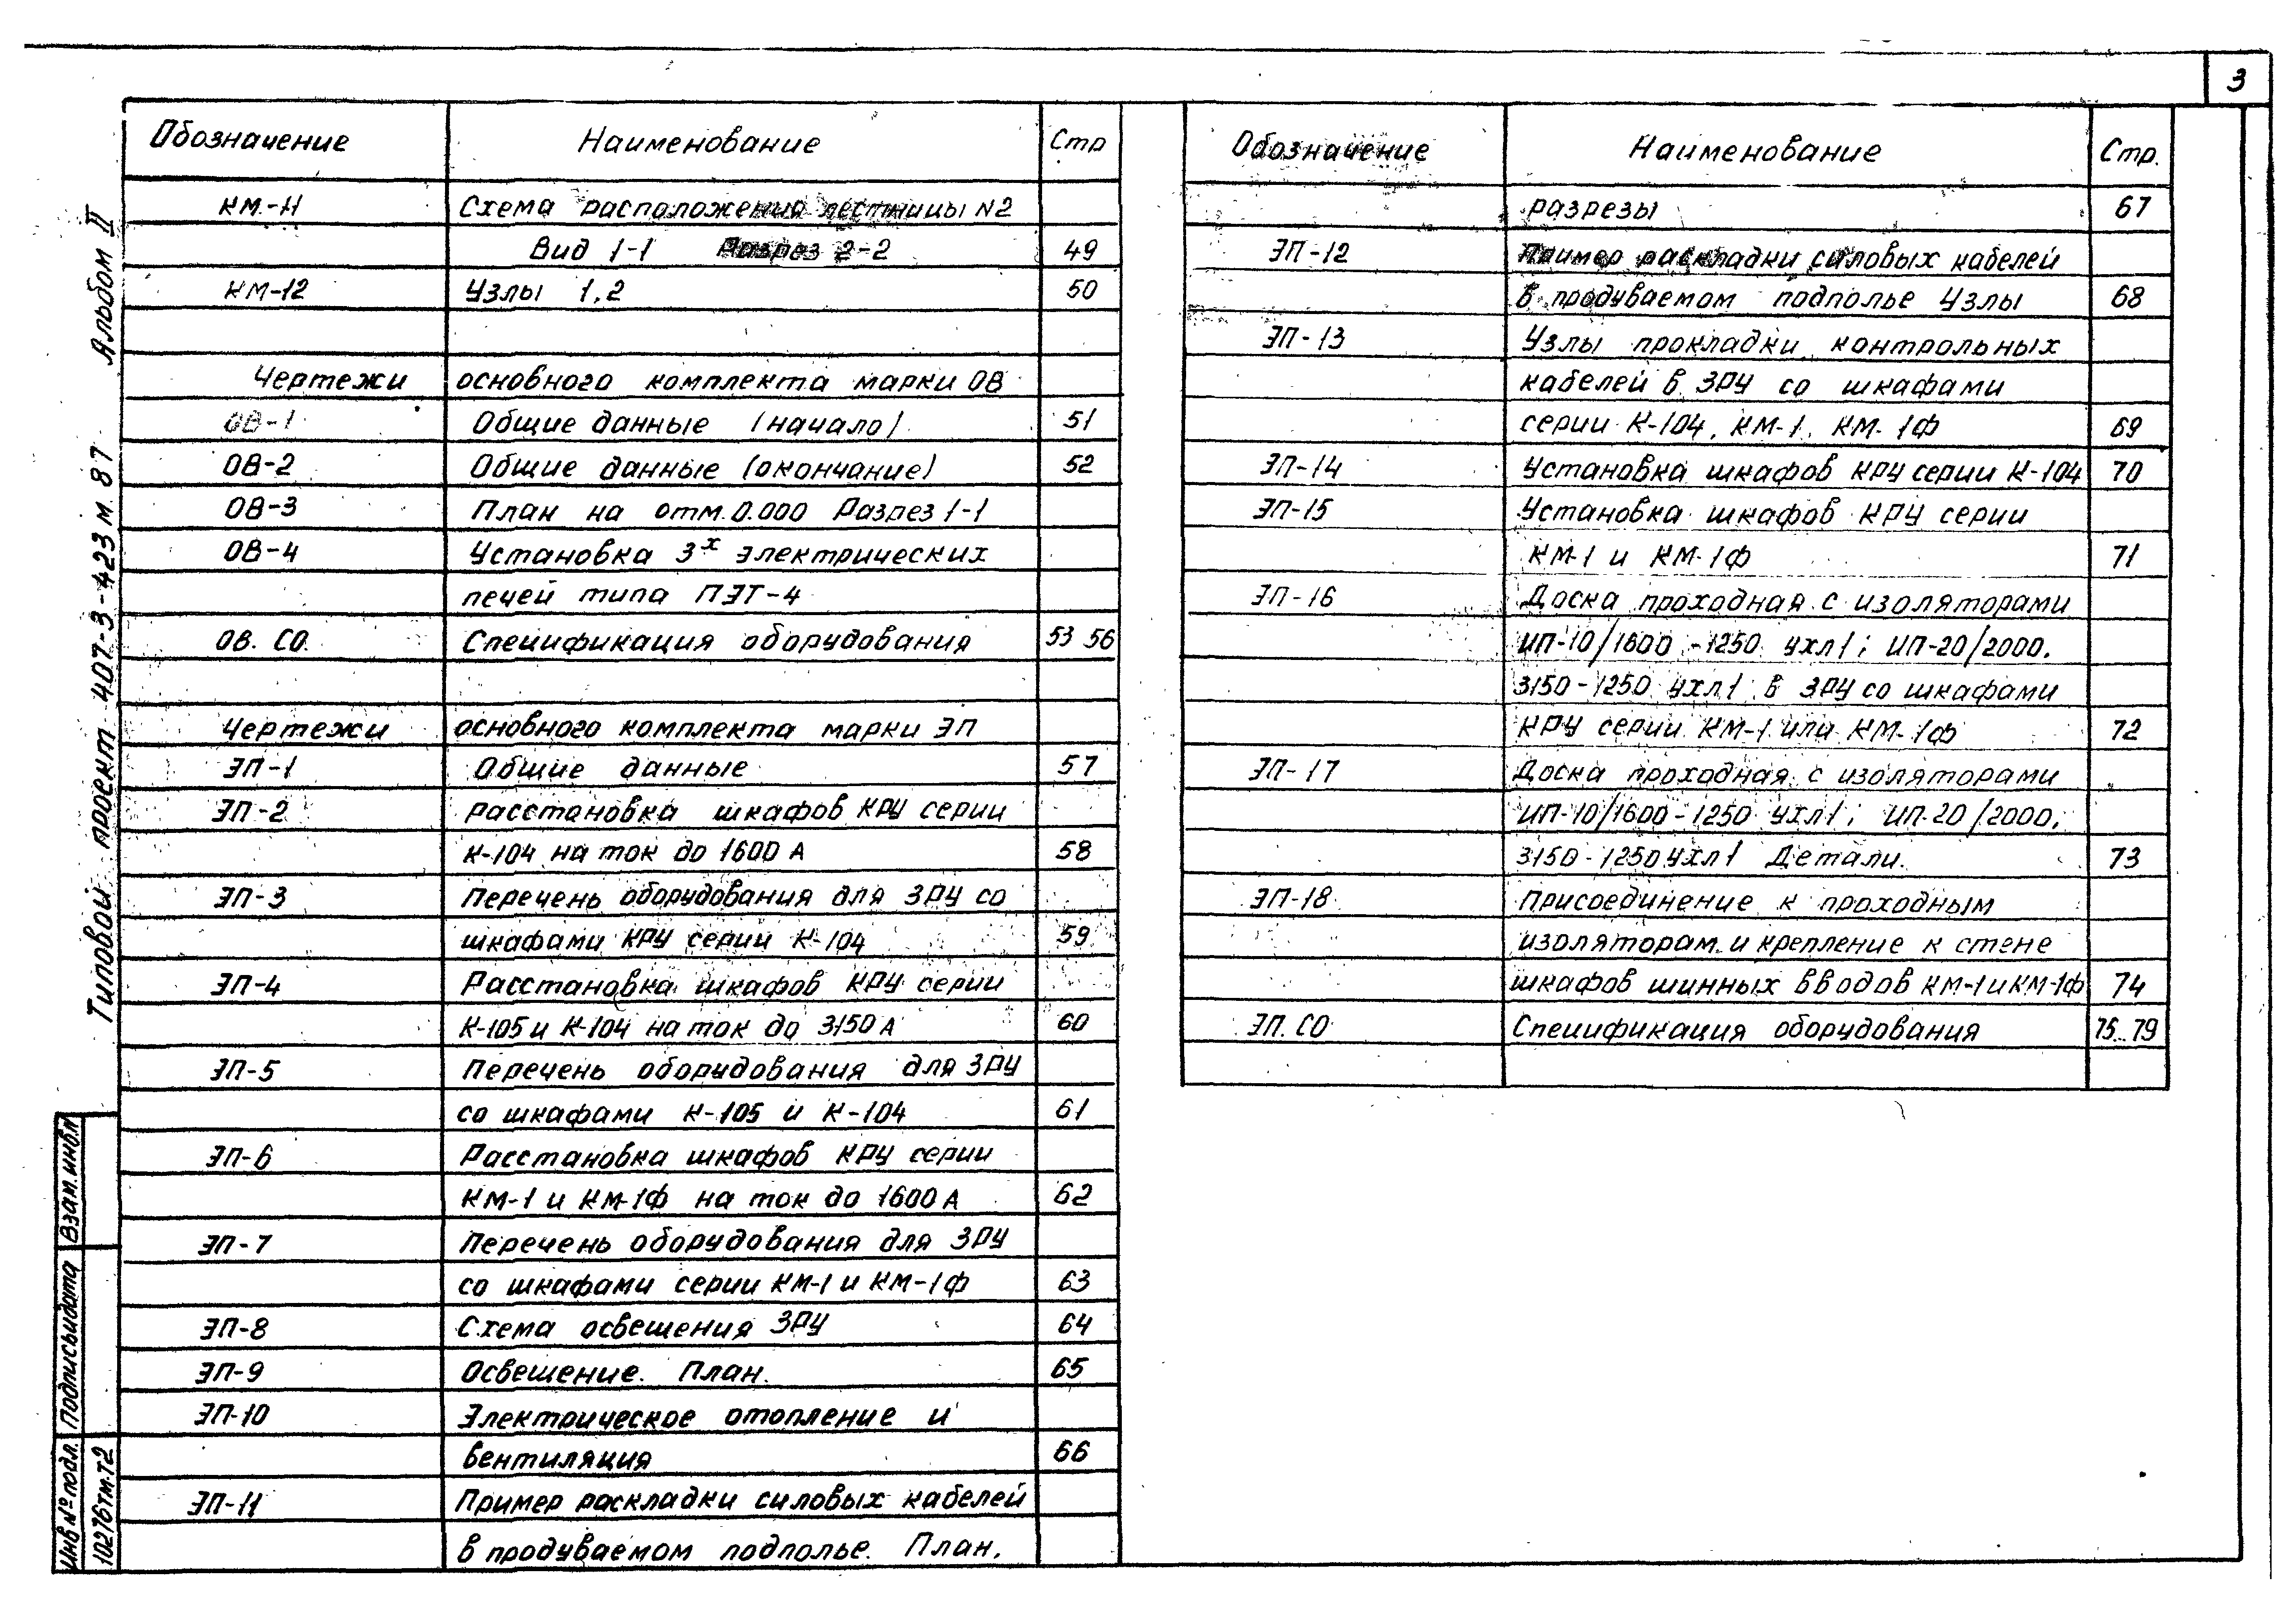 3
Типовой проект 407-3-423 м. 87 Альбом II
Взам. инв.№
Подпись и дата
Инв № подл.
10276тм.т2
Обозначение Наименование Стр
КМ-11 Схема расположения лестницы N2
Вид 1-1 Разрез 2-2 49
КМ-12 Узлы 1,2 50
Чертежи основного комплекта марки ОВ
ОВ-1 Общие данные (начало) 51
ОВ-2 Общие данные (окончание) 52
ОВ-3 План на отм. 0.000 Разрез 1-1
ОВ-4 Установка 3х электрических
печей типа ПЭТ-4
ОВ. СО. Спецификация оборудования 53 56
Чертежи основного комплекта марки ЭП
ЭП-1 Общие данные 57
ЭП-2 Расстановка шкафов КРУ серии
К-104 на ток до 1600 А 58
ЭП-3 Перечень оборудования для ЗРУ со
шкафами КРУ серии К-104 59
ЭП-4 Расстановка шкафов КРУ серии
К-105 и К-104 на ток до 3150 А 60
ЭП-5 Перечень оборудования для ЗРУ
со шкафами К-105 и К-104 61
ЭП-6 Расстановка шкафов КРУ серии
КМ-1 и КМ-1Ф на ток до 1600 А 62
ЭП-7 Перечень оборудования для ЗРУ
со шкафами серии КМ-1 и КМ-1Ф 63
ЭП-8 Схема освещения ЗРУ 64
ЭП-9 Освещение. План. 65
ЭП-10 Электрическое отопление и
вентиляция 66
ЭП-11 Пример раскладки силовых кабелей
в продуваемом подполье. План,
Обозначение Наименование Стр.
разрезы 67
ЭП-12 Пример раскладки силовых кабелей
в продуваемом подполье Узлы 68
ЭП-13 Узлы прокладки контрольных
кабелей в ЗРУ со шкафами
серии К-104, КМ-1, КМ-1Ф 69
ЭП-14 Установка шкафов КРУ серии К-104 70
ЭП-15 Установка шкафов КРУ серии
КМ-1 и КМ-1Ф 71
ЭП-16 Доска проходная с изоляторами
ИП-10/1600-1250 УХЛ1; ИП-20/2000,
3150-1250 УХЛ1 в ЗРУ со шкафами
КРУ серии КМ-1 или КМ-1Ф 72
ЭП-17 Доска проходная с изоляторами
ИП-10/1600-1250 УХЛ1; ИП-20/2000,
3150-1250 УХЛ1 Детали. 73
ЭП-18 Присоединение к проходным
изоляторам и крепление к стене
шкафов шинных вводов КМ-1 и КМ-1Ф 74
ЭП. СО Спецификация оборудования 75...79